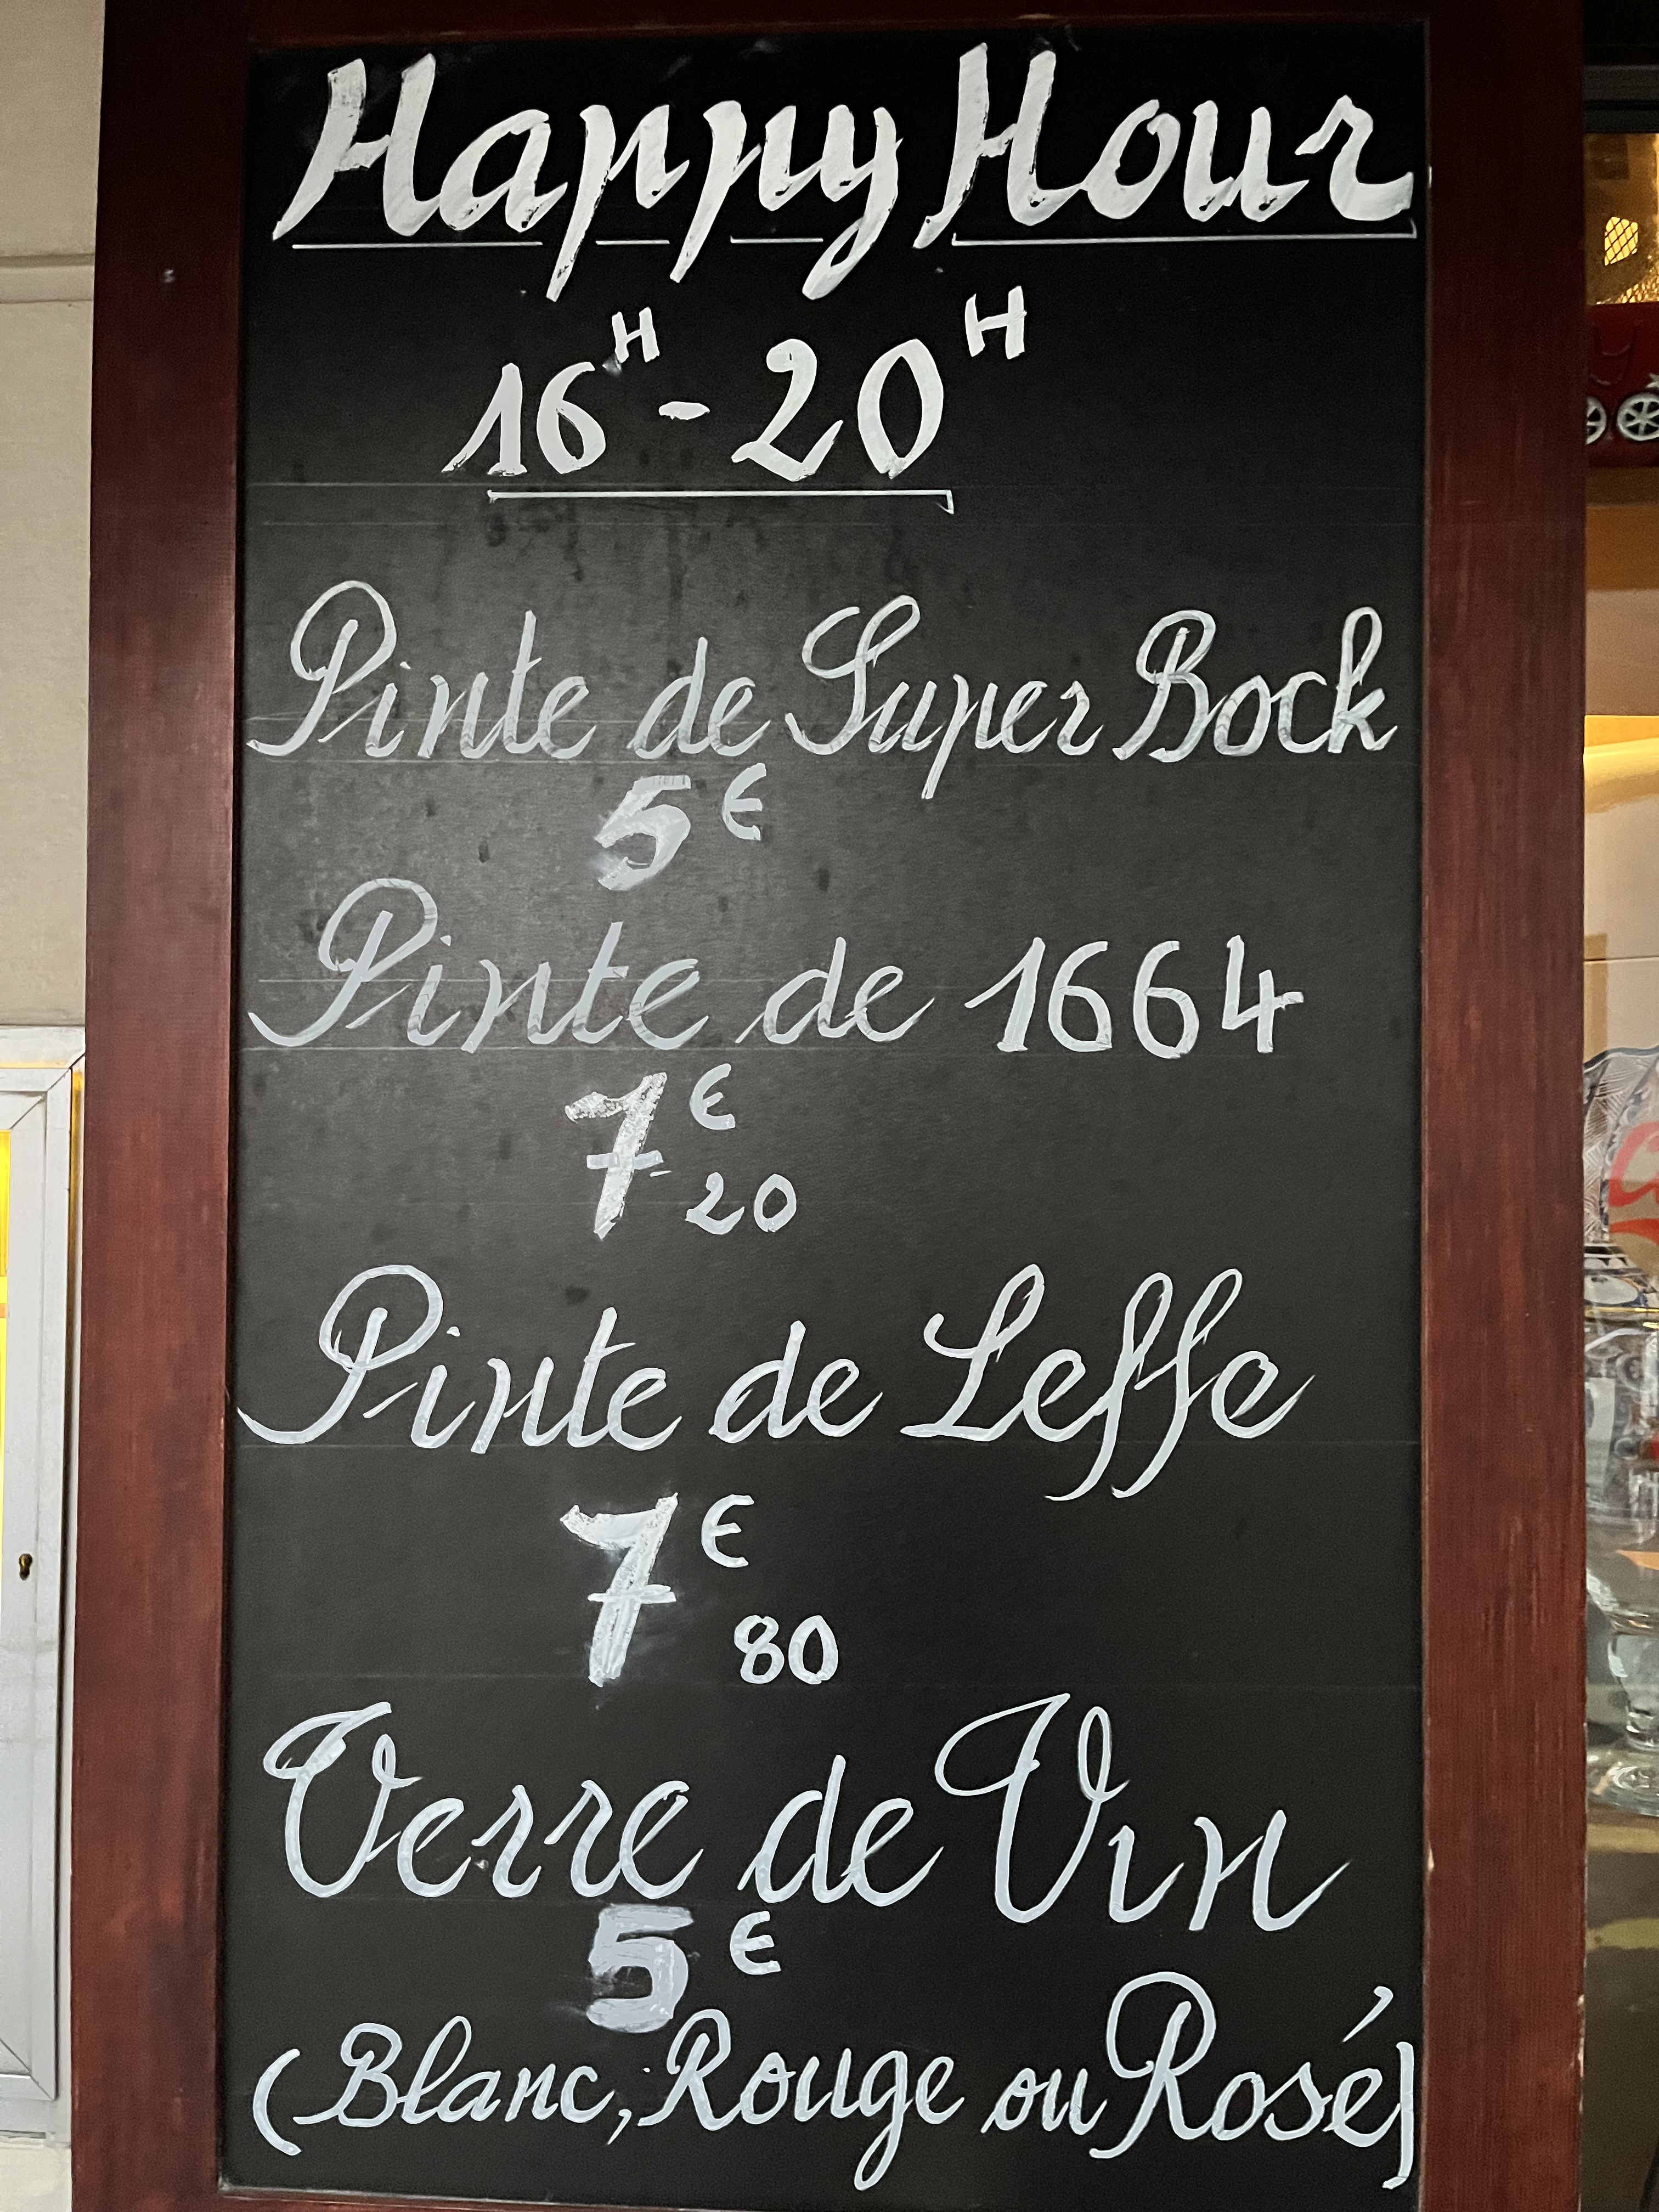 Happy Hour
16H - 20H
Pinte de Super Bock
5€
Pinte de 1664
7€20
Pinte de Leffe
7€80
Verre de Vin
5€
(Blanc, Rouge ou Rosé)